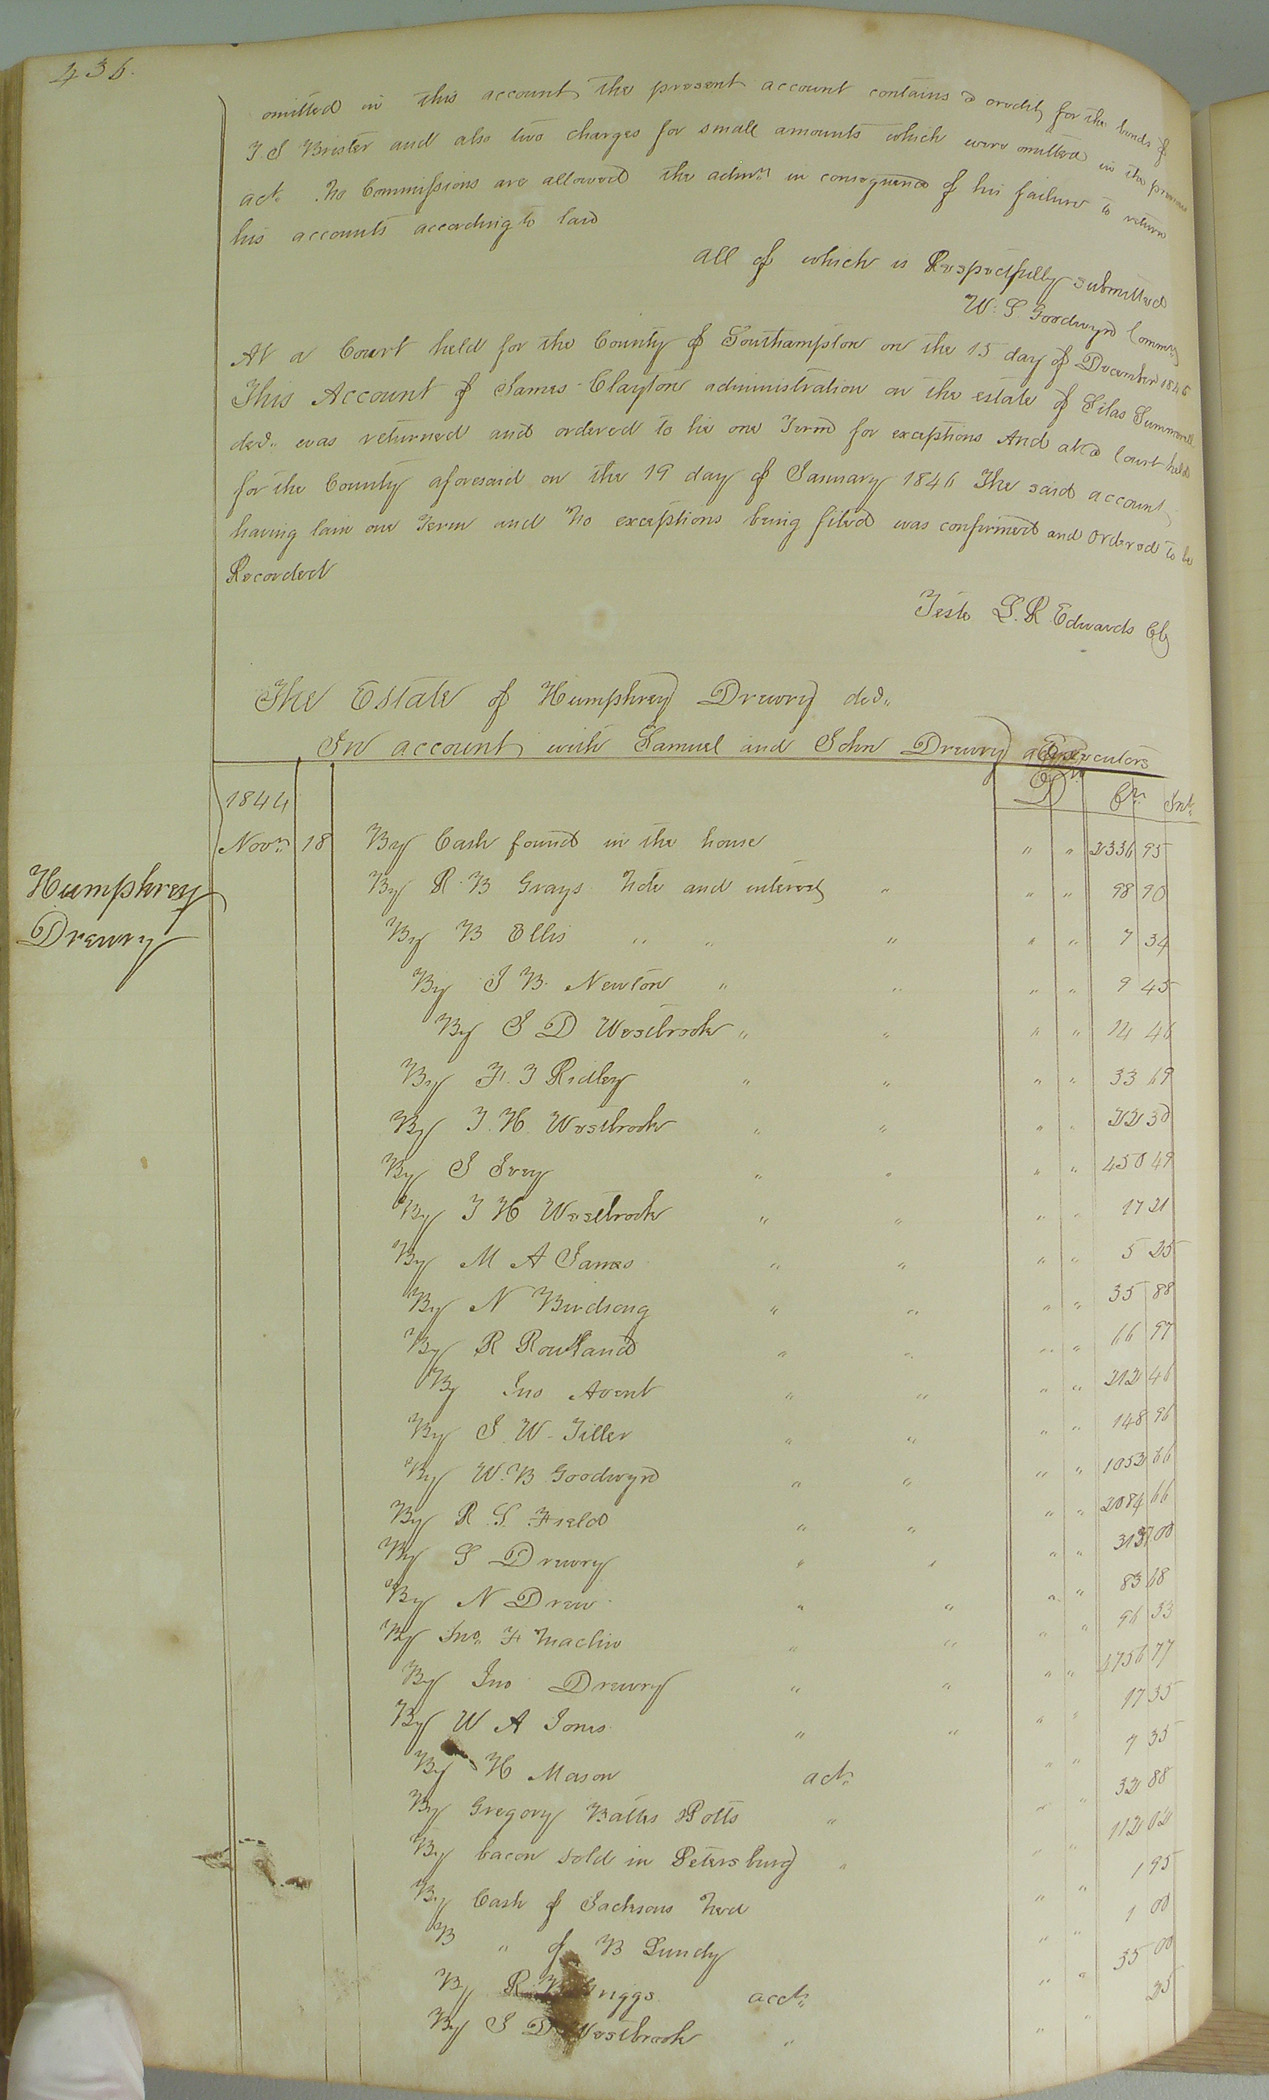 436.
omitted in this account, the present account contains a credit for the bonds of
J S Brister and also two charges for small amounts which were omitted in the previous
act. No Commissions are allowed the admr in consequence of his failure to return
his accounts according to law
All of which is Respectfully submitted
W. S Goodwyn Commr
At a Court held for the County of Southampton on the 15 day of December 1845
This Account of James Clayton administration on the estate of Silas Summerell
decd. was returned and ordered to lie one Term for exceptions And at a Court held
for the County aforesaid on the 19 day of January 1846 The said account
having lain one Term and No exceptions being filed was confirmed and Ordered to be
Recorded
Teste L. R Edwards Clk
The Estate of Humphrey Drewry decd.
In account with Samuel and John Drewry Executors
1844 Dr Cr Int.
Humphrey Drewry
Novr 18 By Cash found in the house " " 2336 95
By R. B Grays Note and interest " " " 98 90
By B Ellis " " " " " 7 34
By J B. Newton " " " " 9 45
By S D Westbrook " " " " 14 46
By F. J Ridley " " " " 33 69
By J. H. Westbrook " " " " 22 30
By J Ivey " " " " 450 49
By J H Westbrook " " " " 17 21
By M A James " " " " 5 25
By N Birdsong " " " " 35 88
By R Rowland " " " " 66 97
By Jno Avent " " " " 212 46
By S. W. Tiller " " " " 148 96
By W. B Goodwyn " " " " 1052 66
By R. S. Field " " " " 2084 66
By S Drewry " " " " 00
By N Drew " " " " 83 68
By Jno. F Maclin " " " " 96 33
By Jno Drewry " " " " 4756 77
By W A Jones " " " " 17 35
By H Mason act. " " 7 35
By Gregory Battes Potts " " " 32 88
By bacon sold in Petersburg " " " 112 02
By Cash of Jacksons " " 1 95
B " of B Lundy " " 1 00
By R Griggs acct. " " 35 00
By S D Westbrook " " " 25